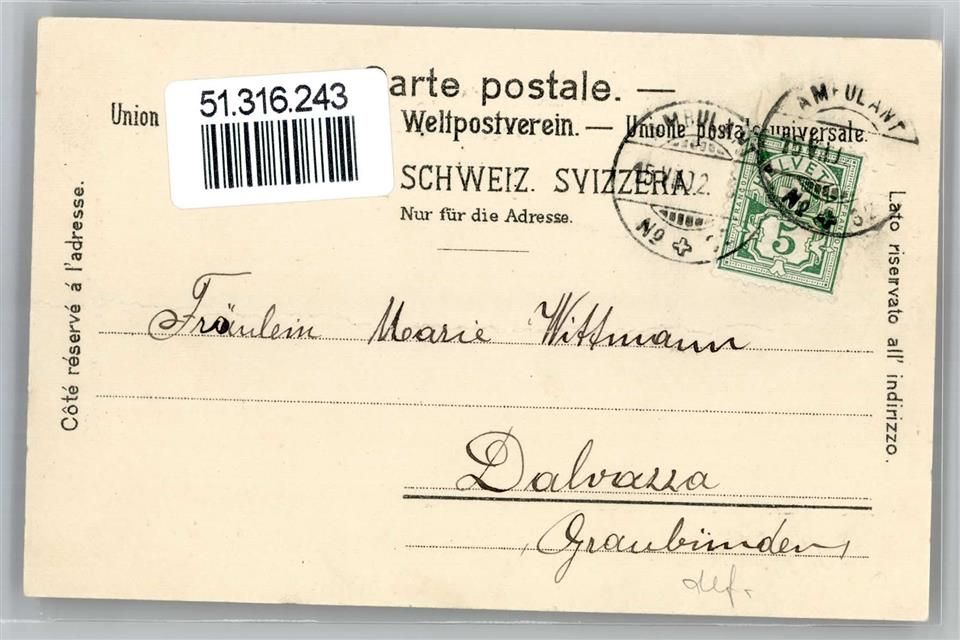 Carte postale. —
51.316.243
Union
Weltpostverein. — Unione postale universale.
SCHWEIZ. SVIZZERA.
Nur für die Adresse.
Côté réservé á l'adresse.
Lato riservato all' indirizzo.
AMBULANT
No
AMBULANT
No
HELVETIA
FRANCO
5
Fräulein Marie Wittmann
Dalvazza
Graubünden
def.